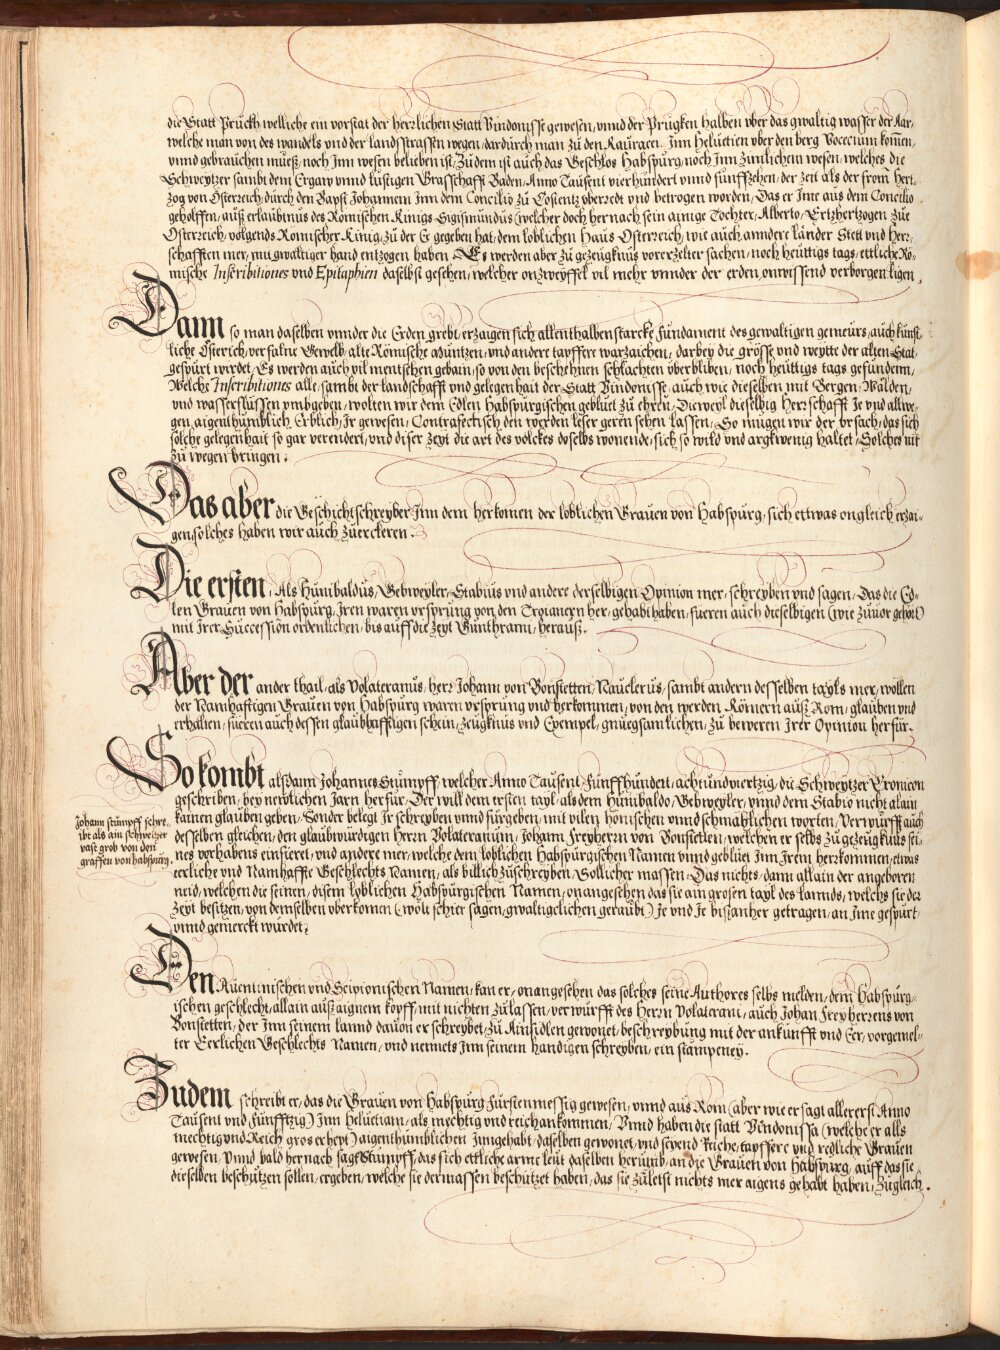 die Statt Prückh, welliche ein vorstat der herrlichen Statt Vindonisse gewesen, vnnd der Prügken halben vber das gwaltig wasser der Aar,
welche man von des wandels vnd der landsstrassen wegen, dardurch man zu den Rauracen, Inn Heluetien vber den berg Vocecium kom̄en,
vnnd gebrauchen müeß, noch Inn wesen belieben ist, Zu dem ist auch das Geschlos Habspurg, noch Inn zimlichem wesen, welches die
Schweytzer sambt dem Ergaw vnnd lustigen Grafschafft Baden, Anno Tausent vierhundert vnnd fünffzehen, der zeit als der from̄ Hert-
zog von Österreich, durch den Bapst Johannem Inn dem Concilio zu Costentz vberredt vnd betrogen worden, Das er Ime aus dem Concilio
geholffen, auß erlaubtnus des Römischen Künigs Sigismundus (welcher doch her nach sein ainige Tochter, Alberto, Ertzhertzogen zue
Osterreich, volgends Römischer Künig, zu der Ee gegeben hat, dem loblichen Haus Osterreich, wie auch anndere länder Stett vnd Herr-
schafften mer, mit gwaltiger hand entzogen haben, Es werden aber zu gezeugknus vorerzelter sachen, noch heuttigs tags, ettliche Rö-
mische Inscribitiones vnd Epitaphien daselbst gesehen, welcher onzweyffel vil mehr vnnder der erden, onwissend verborgen ligen.
Dann so man daselben vnnder die Erden grebt, erzaigen sich allenthalben starcke fundament des gewaltigen gemeürs, auch künst-
liche Österich, verfalne Gewelb, alte Römische Müntzen, vnd andere tapffere warzaichen, darbey die grösse vnd weytte der alten Stat
gespürt wirdet, Es werden auch vil mentschen gebain, so von den beschehnen schlachten vberbliben, noch heüttigs tags gefundenn,
Welche Inscribitiones alle, sambt der landschafft vnd gelegenhait der Statt Vindonisse, auch wie dieselben mit Bergen, Wälden,
vnd wasserflüssen vmbgeben, wolten wir dem Edlen Habspurgischen geblüet zu ehren, Dieweyl dieselbig Herrschafft Je vnd allwe-
gen, aigenthumblich, Erblich, Jr gewesen, Contrafectisch den werden leser geren sehen lassen, So mügen wir der vrsach, das sich
solche gelegenhait so gar verendert, vnd diser zeyt die art des volckes doselbs wonende, sich so wild vnd argkwenig haltet, Solches nit
zu wegen bringen.
Das aber die Geschichtschreyber Inn dem herkomen der loblichen Grauen von Habspurg, sich ettwas ongleich erzai-
gen, solches haben wir auch zuercleren.
Die ersten, Als Hunibaldus, Gebweyler, Stabius vnd andere derselbigen Opinion mer, schreyben vnd sagen, Das die Ed-
len Grauen von Habspurg, Jren waren vrsprung von den Troianern her, gehabt haben, fueren auch dieselbigen (wie zuuor gehört)
mit Jrer Succession ordenlichen, bis auff die Zeyt Gunthrami, herauß.
Aber der ander thail, als Volateranus, herr Johann von Bonstetten, Nauclerus, sambt andern desselben tayls mer, wollen
der Namhafftigen Grauen von Habspurg waren vrsprung vnd herkommen, von den werden Römern auß Rom, glauben vnd
erhalten, fueren auch dessen glaubhafftigen schein, Zeugknus vnd Exempel, gnuegsamlichen, zu beweren Jrer Opinion herfür.
So kombt alsdann Johannes Stumpff, welcher Anno Tausent, Fünffhundert, achtundviertzig, die Schweytzer Cronicen
geschriben, bey newlichen Jarn herfür, Der will dem ersten tayl, als dem Hunibaldo, Gebweyler, vnnd dem Stabio nicht alain
kainen glauben geben, Sonder belegt Je schreyben vnnd fürgeben, mit vilen hönischen vnnd schmählichen worten, Verwürfft auch
desselben gleichen, den glaubwürdigen Herrn Volateranum, Johann Freyherrn von Bonstetten, welchen er selbs zu gezeugknus sei-
nes vorhabens einfieret, vnd andere mer, welche dem loblichen Habspurgischen Namen vnnd geblüet Inn Irem herrkommen, etwas
eerliche vnd Namhaffte Geschlechts Namen, als billich zuschreyben, Sollicher massen, Das nichts, dann allain der angeboren
neid, welchen die seinen, disem loblichen Habspurgischen Namen, onangesehen das sie ain grosen tayl des lannds, welchs sie der
Zeyt besitzen, von demselben vberkomen (wolt schier sagen, gwaltigclichen geraubt) Je vnd Je bißanher getragen, an Ime gespürt
vnnd gemerckt würdet.
Johann stümpff schrei-
ibt als ain schweitzer
vast grob von den
graffen von habspurg.
Den Auentinischen vnd Scipionischen Namen, kan er, onangesehen das solches seine Authores selbs melden, dem Habspurg-
ischen geschlecht, allain auß aignem kopff, mit nichten zulassen, verwürfft des Herrn Volaterani, auch Johan Freyherrens von
Bonstetten, der Inn seinem lannd dauon er schreybet, zu Ainsidlen gewonet, beschreybung mit der ankunfft vnd Eer, vorgemel-
ter Eerlichen Geschlechts Namen, vnd nennets Inn seinem handigen schreyben, ein stampeney.
Zudem schreibt er, das die Grauen von Habspurg Fürstenmessig gewesen, vnnd aus Rom (aber wie er sagt allererst Anno
Tausent vnd Fünfftzig) Inn Heluetiam, als mechtig vnd reich ankommen, Vnnd haben die statt Vindonissa (welche er alls
mechtig vnd Reich gros erhept) aigenthumblichen Inngehabt, daselben gewonet, vnd seyend Reiche, tapffere vnd redliche Grauen
gewesen, Vnnd bald hernach sagt Stumpff, das sich ettliche arme leut daselben herumb, an die Grauen von Habspurg, auff das sie
dieselben beschutzen sollen, ergeben, welche sie dermassen beschutzet haben, das sie zuletst nichts mer aigens gehabt haben, Zugleich.